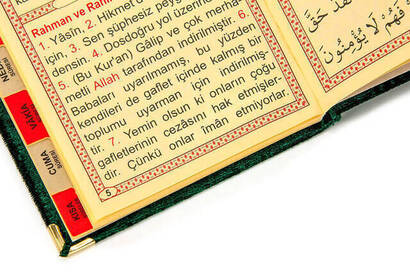 Rahman ve Rah
1. Yâsîn, 2. Hikmet d
için, 3. Sen şüphesiz peyg
densin. 4. Dosdoğru yol üzerin
5. (Bu Kur'an) Gâlip ve çok merha
metli Allah tarafından indirilmiştir. 6.
Babaları uyarılmamış, bu yüzden
kendileri de gaflet içinde kalmış bir
toplumu uyarman için indirilmiş-
tir. 7. Yemin olsun ki onların çoğu
gafletlerinin cezasını hak etmişler-
dir. Çünkü onlar îmân etmiyorlar.
5
VÂKIA
CUMA
SÛRESİ
KISA
فَهُمْ لَا يُؤْمِنُونَ